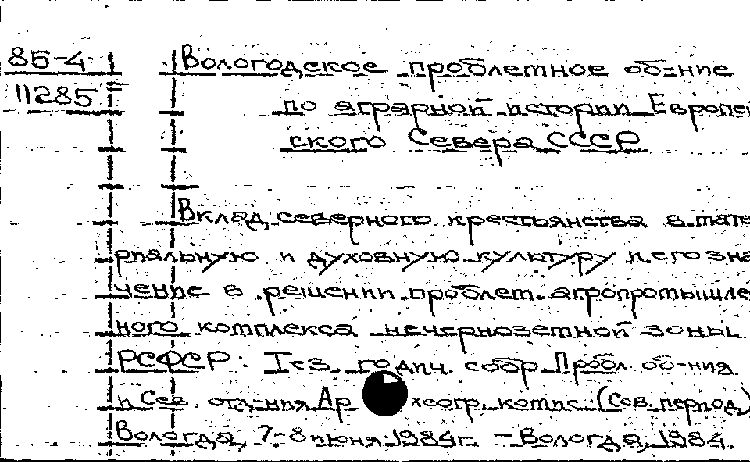 85-4
11285
Вологодское проблемное об-ние
по аграрной истории Европей
ского Севера СССР
Вклад северного крестьянства в мате
риальную и духовную культуру и его зна
чение в решении проблем агропромышле
ного комплекса нечерноземной зоны
РСФСР: Тез. годич. собр. Пробл. об-ния
и Сев. отд-ния Археогр. комис. (Сов. период)
Вологда, 7-8 июня 1984г. - Вологда, 1984.